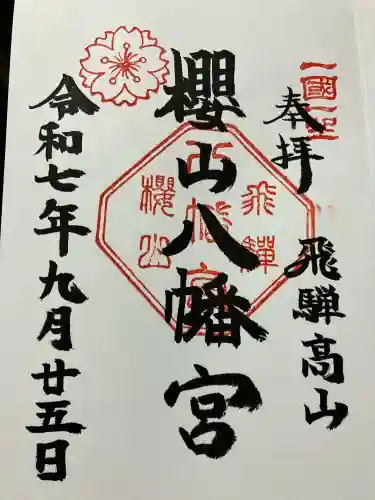 奉拝
飛騨高山
一國一社
櫻山八幡宮
飛騨
八幡宮
櫻山
令和七年九月廿五日